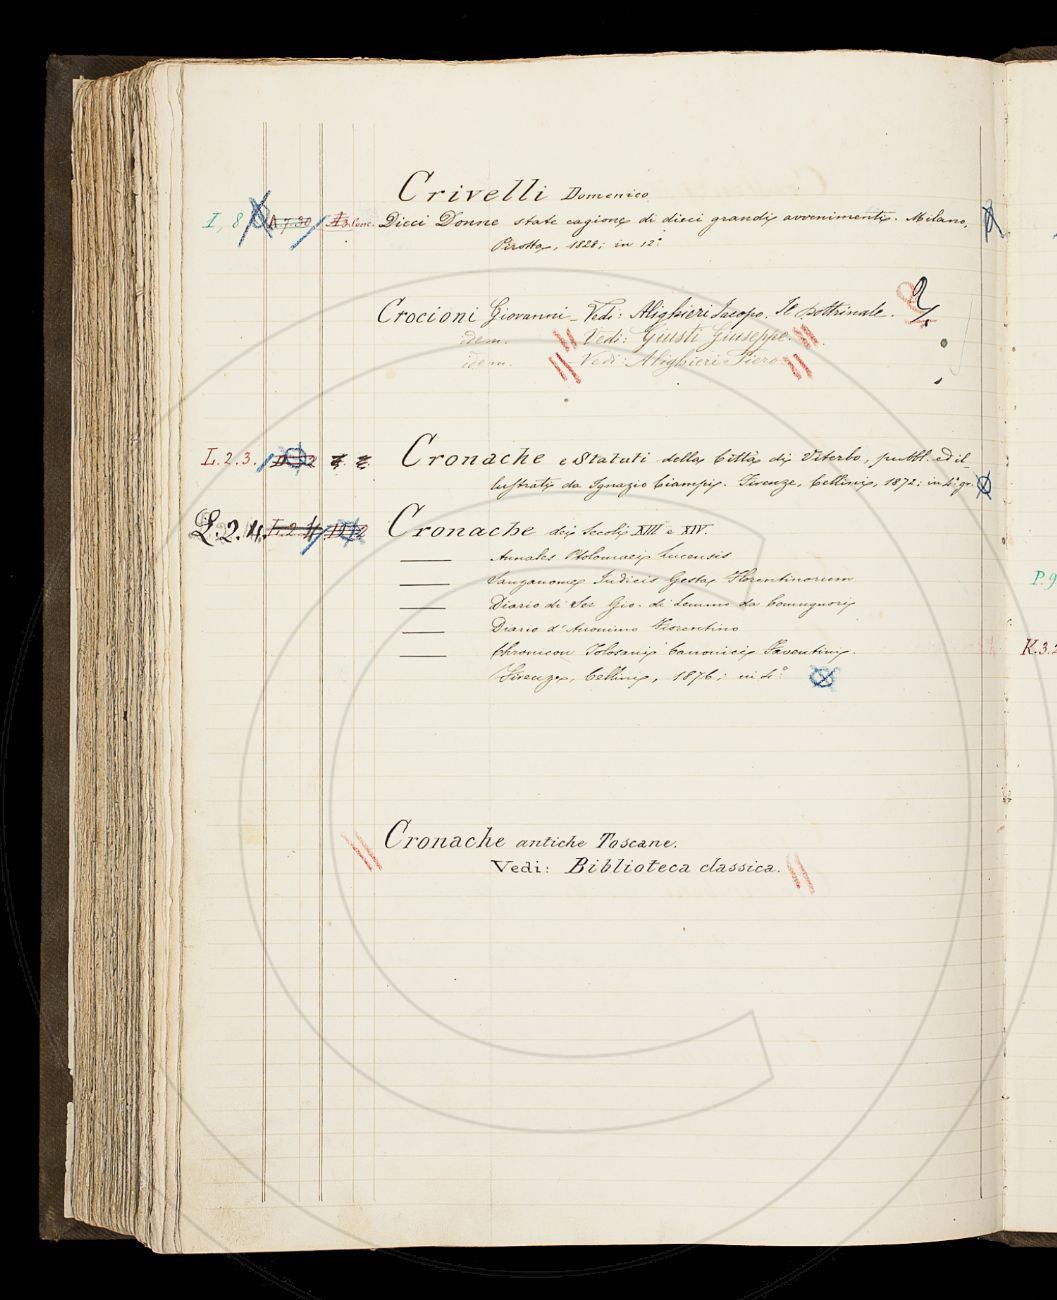 Crivelli Domenico
I, 8 A 7.30 Dieci Donne state cagione di dieci grandi avvenimenti. Milano,
Perotta, 1828; in 12.º
Crocioni Giovanni - Vedi: Alighieri Jacopo. Il Dottrinale.
idem. Vedi: Giusti Giuseppe.
idem. Vedi: Alighieri Piero
L.2.3. Cronache e Statuti della Città di Viterbo, pubbl. ed il-
lustrati da Ignazio Ciampi. Firenze, Cellini, 1872; in 4.º gr.
L.2.4. Cronache dei Secoli XIII e XIV.
— Annales Ptolomaei Lucensis
— Sanzanome Judicis Gesta Florentinorum
— Diario di Ser Gio. di Lemmo da Comugnori
— Diario d'Anonimo Fiorentino
— Chronicon Tolosani Canonici Faventini.
Firenze, Cellini, 1876; in 4.º
Cronache antiche Toscane.
Vedi: Biblioteca classica.
P.9
K.3.2